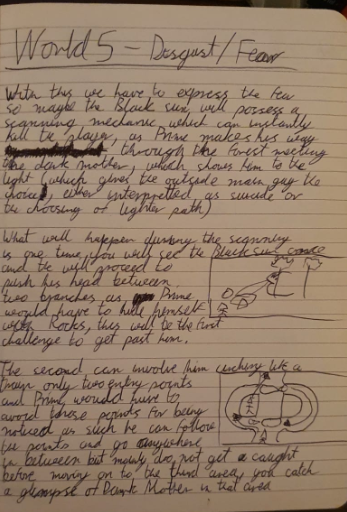 World 5 - Disgust/Fear
With this we have to express the fear
so maybe the Black sun, will possess a
scanning mechanic which can instantly
kill the player, as Prime makes his way
through the forest meeting
the dark mother, which shows him to the
light (which gives the outside man guy the
choice, either interpreted as suicide or
the choosing of lighter path)
What will happen during the scanning
is one time, you will see the Black sun once
and he will proceed to
push his head between
two branches as Prime
would have to hide himself
with Rocks, this will be the first
challenge to get past him.
The second, can involve him circling like a
train only two entry points
and Prime would have to
avoid these points for being
noticed as such he can follow
he points and go anywhere
in between but mainly do not get a caught
before moving on to the third area, you catch
a glimpse of Dark Mother in that area